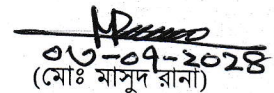 ০৩-০৭-২০২৪
(মোঃ মাসুদ রানা)